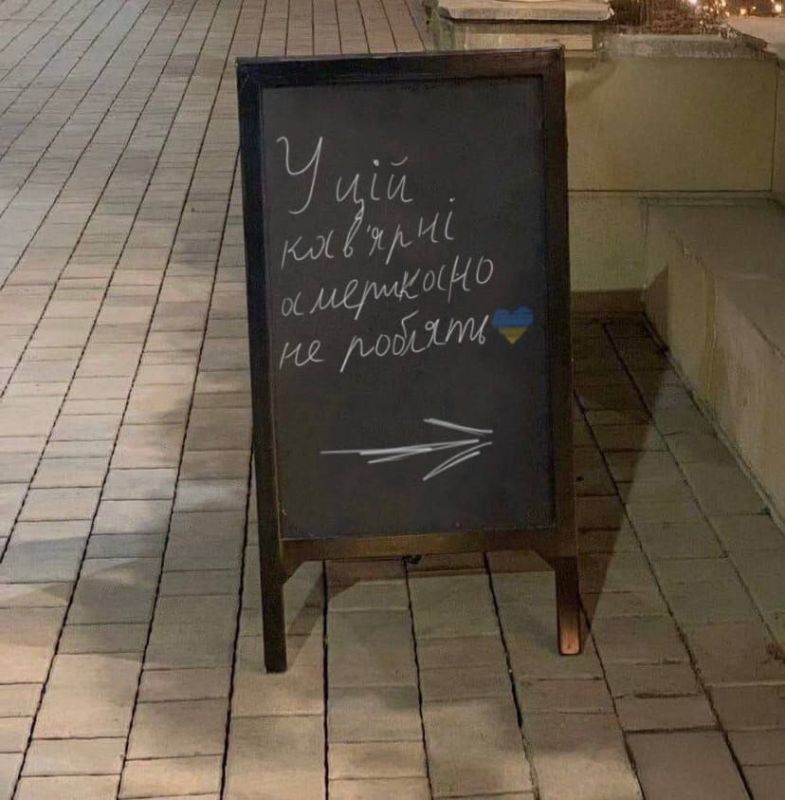 У цій
кав'ярні
американо
не роблять